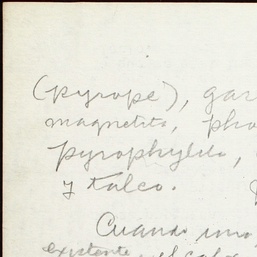 (pyrope), gar
magnetita, pho
pyrophylita,
y talco.
Cuando uno
existente, el calor